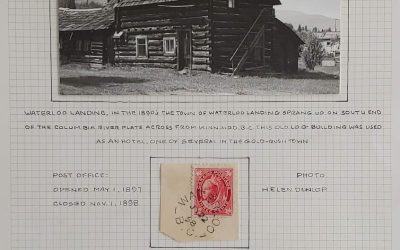 WATERLOO LANDING, IN THE 1890'S THE TOWN OF WATERLOO LANDING SPRANG UP ON SOUTH END
OF THE COLUMBIA RIVER PLATE ACROSS FROM KINNAIRD. B.C. THIS OLD LOG BUILDING WAS USED
AS AN HOTEL, ONE OF SEVERAL IN THE GOLD-RUSH TOWN
POST OFFICE:
OPENED MAY 1, 1897
CLOSED NOV. 1, 1898
PHOTO
HELEN DUNLOP